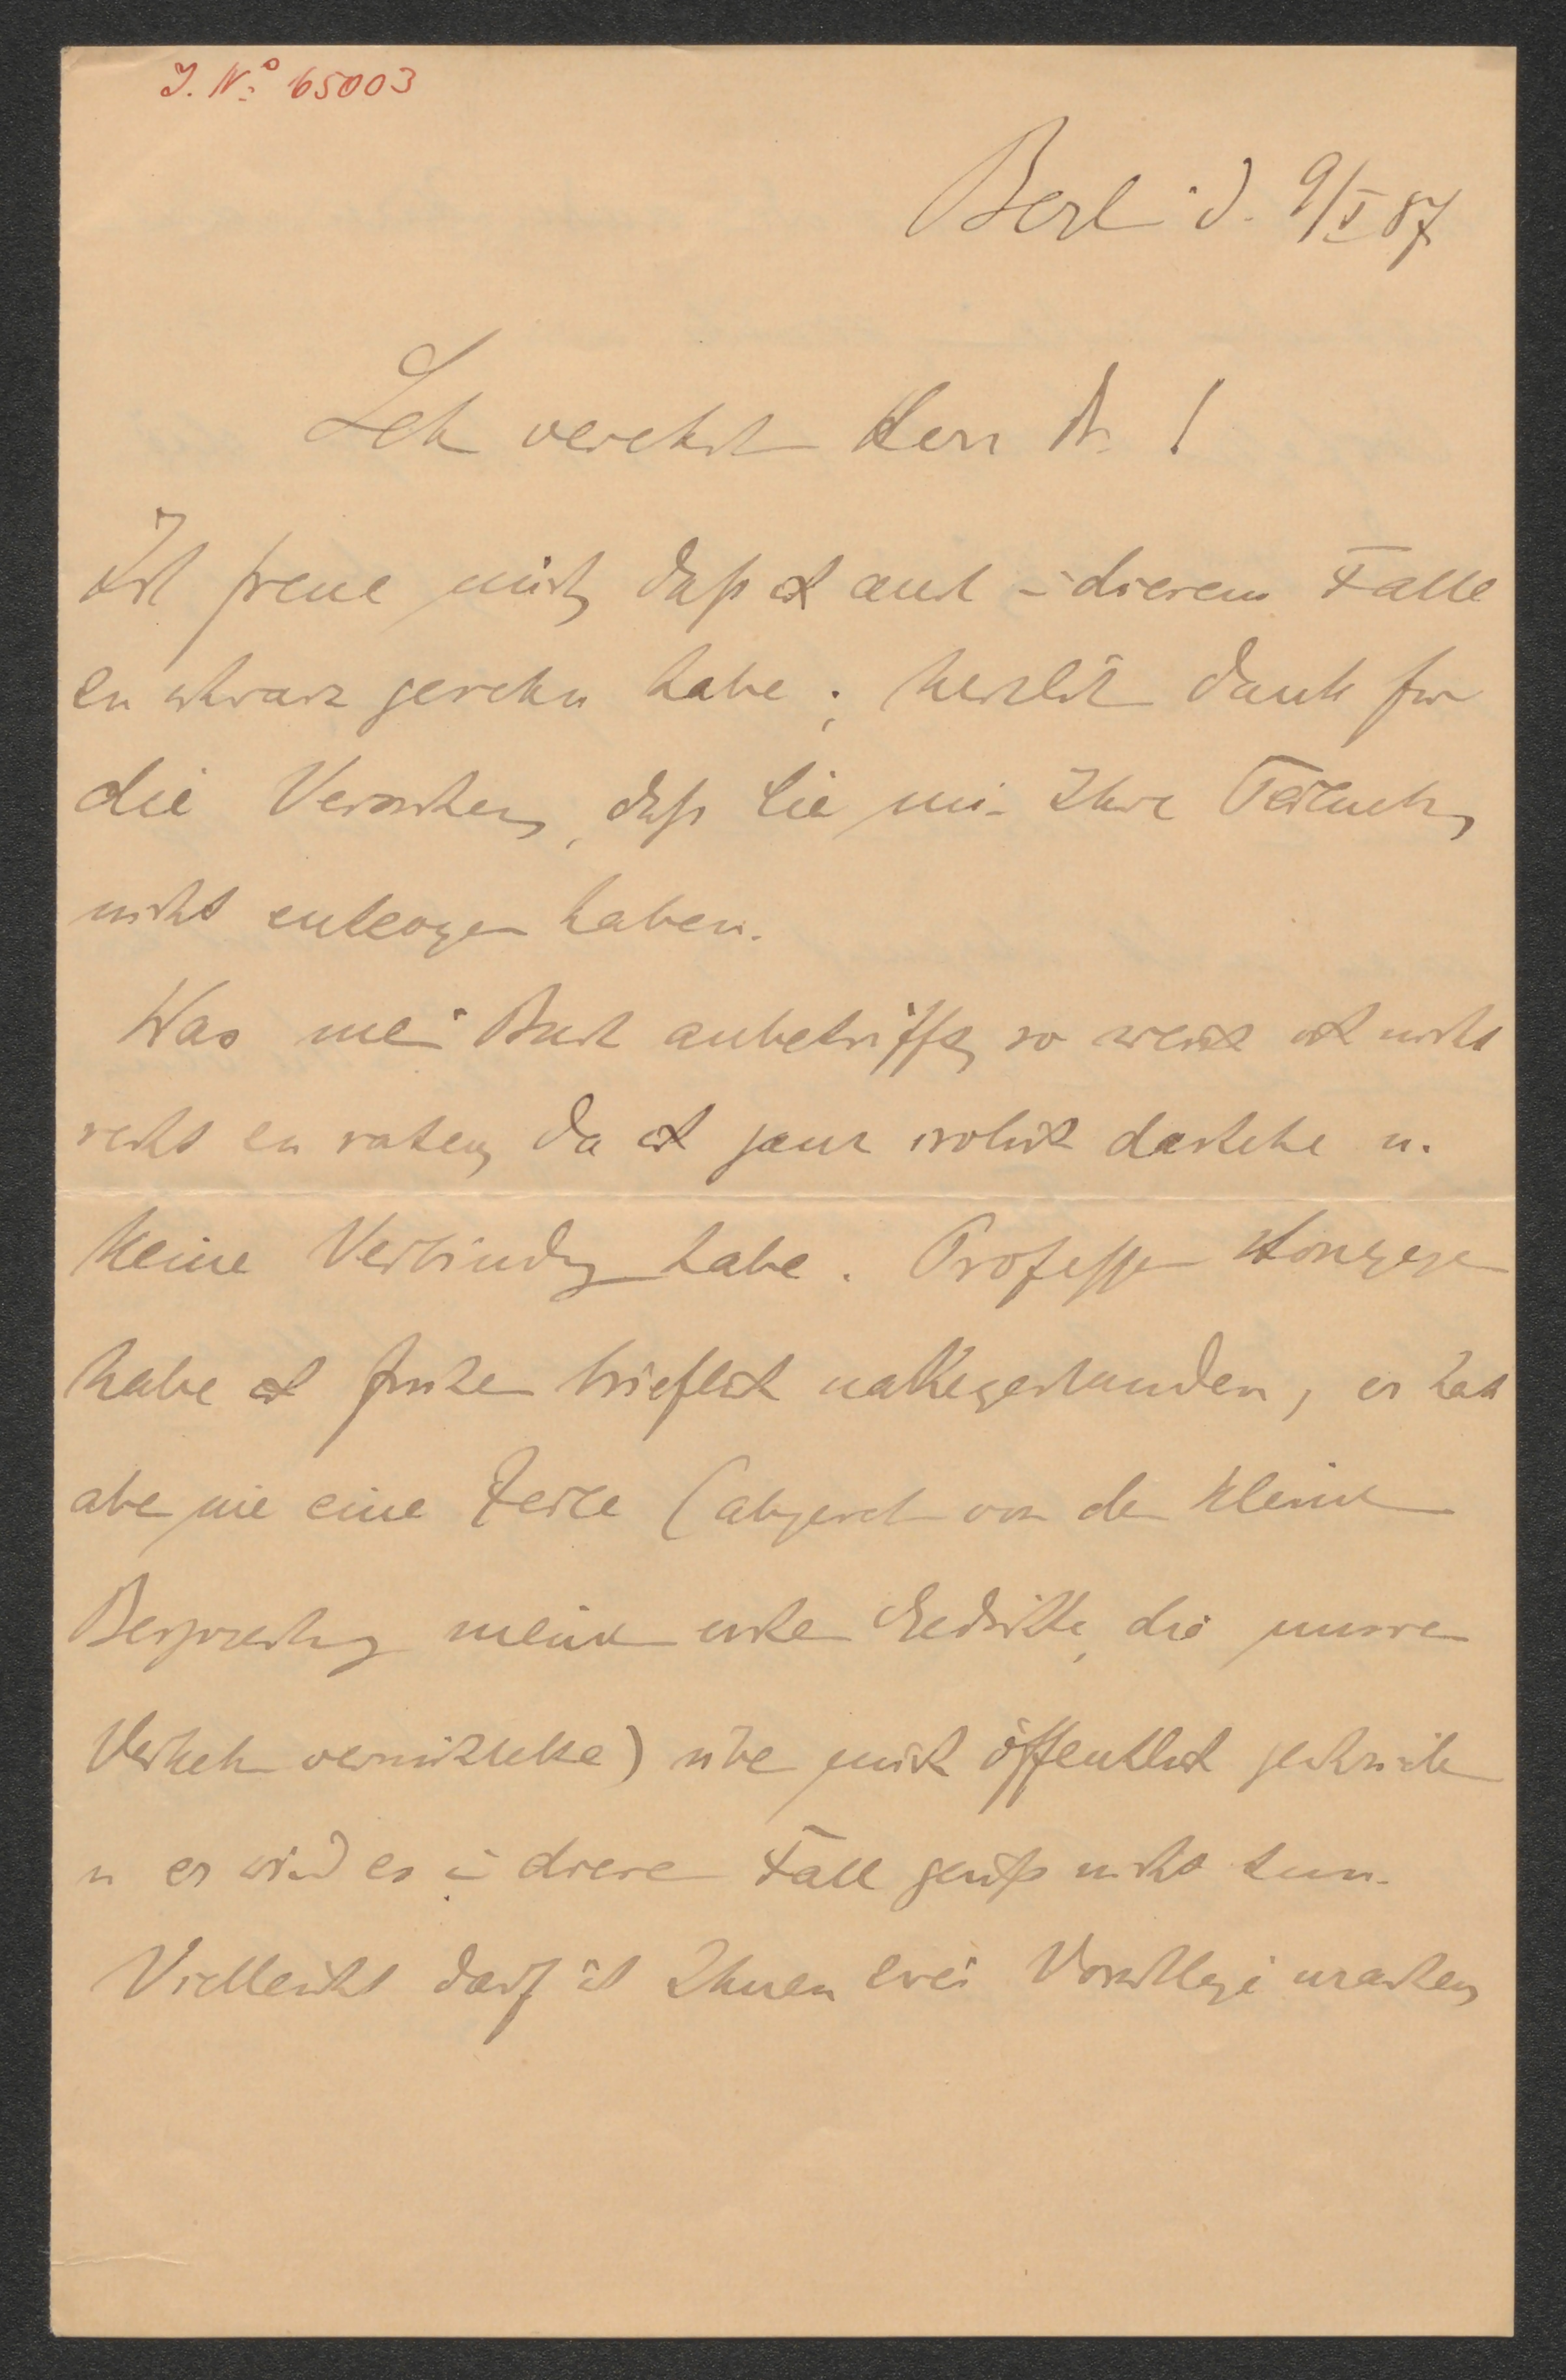 J. No 65003
Berlin d. 9/X 87
Sehr verehrter Herr Dr.!
Ich freue mich, daß ich auch in diesem Falle
zu schwarz gesehen habe; herzlichen Dank für
die Versicherung, daß Sie mir Ihre Teilnahme
nicht entzogen haben.
Was mein Buch anbetrifft, so weiß ich nicht
recht zu raten, da ich ganz isoliert dastehe u.
keine Verbindung habe. Professor
habe ich früher brieflich nahegestanden, er hat
aber nie eine Zeile (abgesehen von der kleinen
Besprechung meiner ersten Gedichte, die unseren
Verkehr vermittelte) über mich öffentlich geschrieben
u er wird es in diesem Fall gewiß nicht tun.
Vielleicht darf ich Ihnen zwei Vorschläge machen,